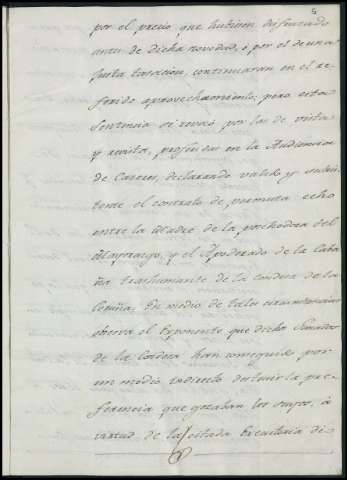 5
por el precio que hubiesen disfrutado
antes de dicha novedad, ó por el de una
justa tasacion, continuaran en el re-
ferido aprovechamiento; pero esta
Sentencia se revocó por las de vista
y revista, proferidas en la Audiencia
de Caceres, declarando valido y subsis
tente el contrato de permuta echo
entre la Madre de la poseedora del
Mayorazgo, y el Apoderado de la Caba
ña trashumante de la Condesa de la
Coruña; En medio de tales circunstancias
observa el Exponente que dicho
de la Condesa han conseguido por
un medio indirecto destruir la pre
ferencia que gozaban los suyos, á
virtud de la citada Executoria di